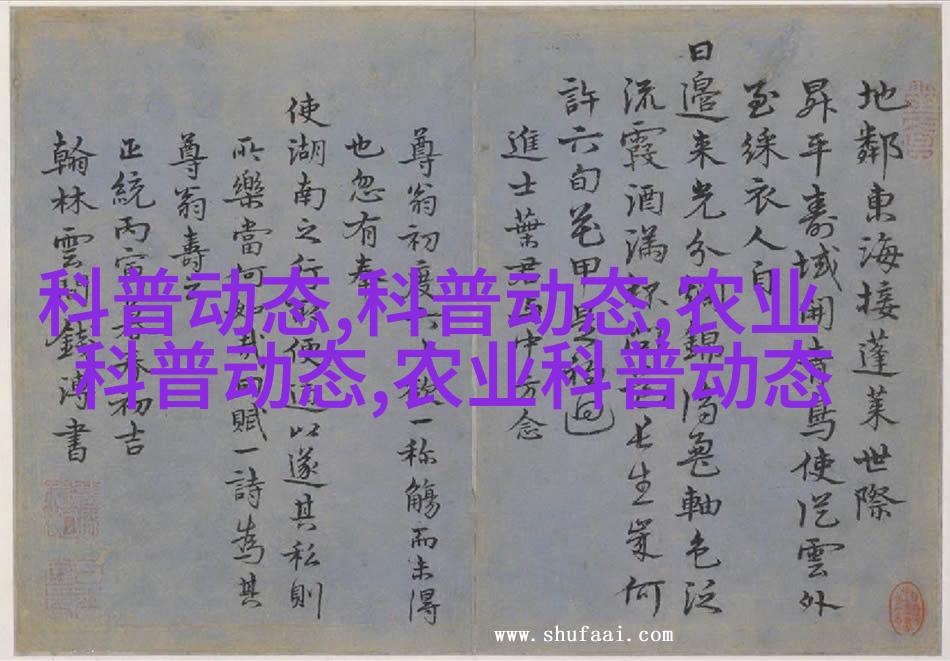 科普动态,科普动态,农业
科普动态,农业科普动态
地鄰東海接蓬萊世際
昇平壽域開鳥使從雲外
至綵衣人自
日邊來光分錦軸色泛
流霞酒滿長生歲何
許六旬花甲
進士葉君中方念
尊翁初度一称觴而未得
也忽有奉
使湖南之行便道以遂其私則
所樂當何賦一詩為其
尊翁壽云
正統丙寅春初吉
翰林雲間錢溥書
www.shufaai.com